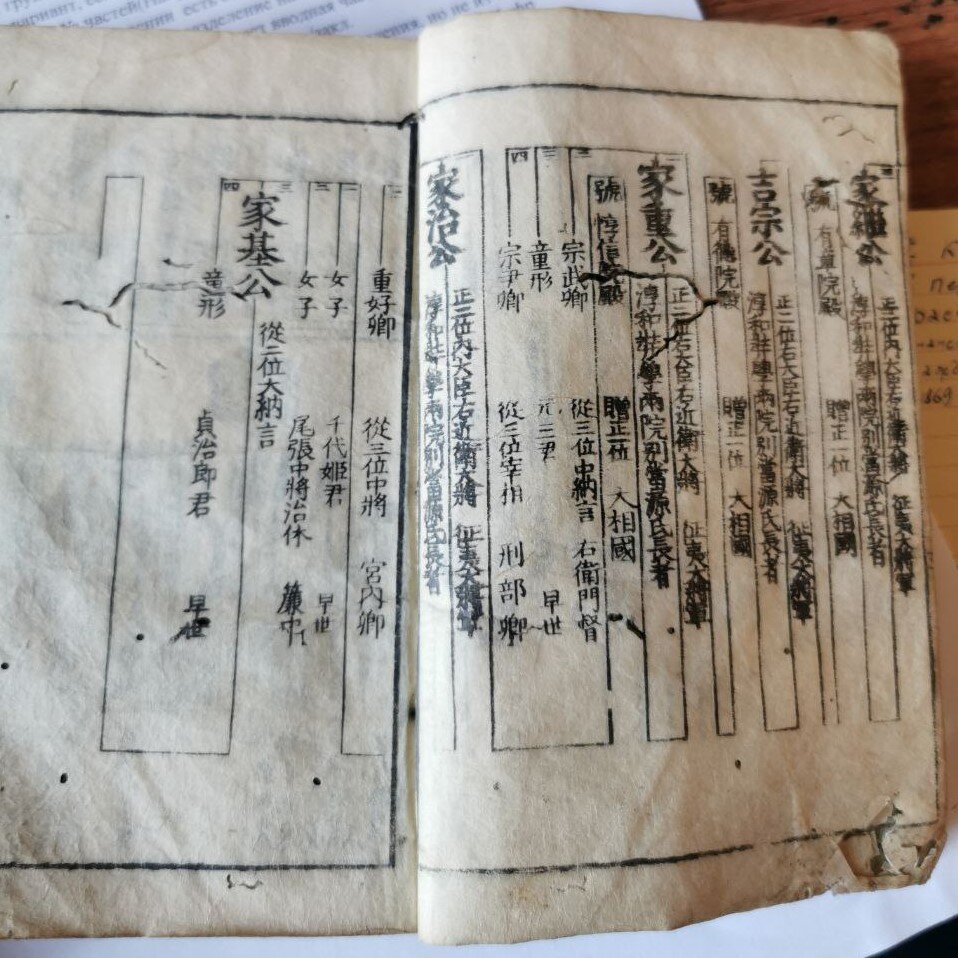 家繼公
正二位内大臣右近衛大將 征夷大將軍
淳和奬學兩院別當源氏長者
號 有章院殿 贈正一位 大相國
吉宗公
正二位右大臣右近衛大將 征夷大將軍
淳和奬學兩院別當源氏長者
號 有德院殿 贈正一位 大相國
家重公
正二位右大臣右近衛大將 征夷大將軍
淳和奬學兩院別當源氏長者
號 惇信院殿 贈正一位 大相國
二 宗武卿 從三位中納言 右衛門督
三 童形 元三君 早世
四 宗尹卿 從三位宰相 刑部卿
家治公
正二位内大臣右近衛大將 征夷大將軍
淳和奬學兩院別當源氏長者
二 重好卿 從三位中將 宮内卿
女子 千代姬君 早世
女子 尾張中將治休 簾中
三 家基公 從二位大納言
四 童形 貞治郎君 早世